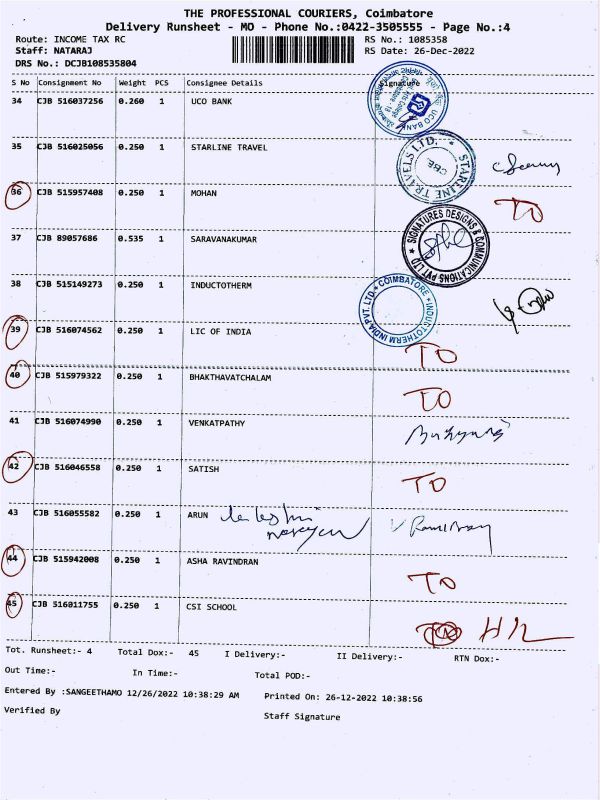 THE PROFESSIONAL COURIERS, Coimbatore
Delivery Runsheet - MO - Phone No.:0422-3505555 - Page No.:4
Route: INCOME TAX RC RS No.: 1085358
Staff: NATARAJ RS Date: 26-Dec-2022
DRS No.: DCJB108535804
S No Consignment No Weight PCS Consignee Details Signature
34 CJB 516037256 0.260 1 UCO BANK
UCO BANK
35 CJB 516025056 0.250 1 STARLINE TRAVEL
STARLINE TRAVELS LTD. CBE.
36 CJB 515957408 0.250 1 MOHAN TO
37 CJB 89057686 0.535 1 SARAVANAKUMAR
SIGNATURES DESIGNS & COMMUNICATIONS PVT LTD
38 CJB 515149273 0.250 1 INDUCTOTHERM
INDUCTOTHERM INDIA PVT. LTD. COIMBATORE
39 CJB 516074562 0.250 1 LIC OF INDIA TO
40 CJB 515979322 0.250 1 BHAKTHAVATCHALAM TO
41 CJB 516074990 0.250 1 VENKATPATHY
42 CJB 516046558 0.250 1 SATISH TO
43 CJB 516055582 0.250 1 ARUN
44 CJB 515942008 0.250 1 ASHA RAVINDRAN TO
45 CJB 516011755 0.250 1 CSI SCHOOL
Tot. Runsheet:- 4 Total Dox:- 45 I Delivery:- II Delivery:- RTN Dox:-
Out Time:- In Time:- Total POD:-
Entered By :SANGEETHAMO 12/26/2022 10:38:29 AM Printed On: 26-12-2022 10:38:56
Verified By Staff Signature